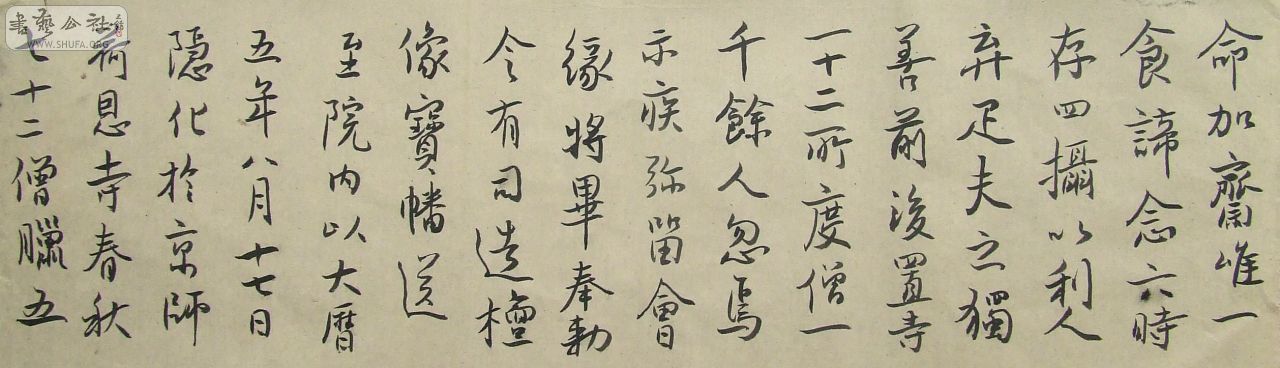 命加齋唯一
食諦念六時
存四攝以利人
弃疋夫之獨
善前後置寺
一十二所度僧一
千餘人忽焉
示疾弥留會
緣將畢奉勅
令有司造檀
像寶幡送
至院内以大曆
五年八月十七日
隱化於京師
荷恩寺春秋
七十二僧臘五
書藝公社
WWW.SHUFA.ORG